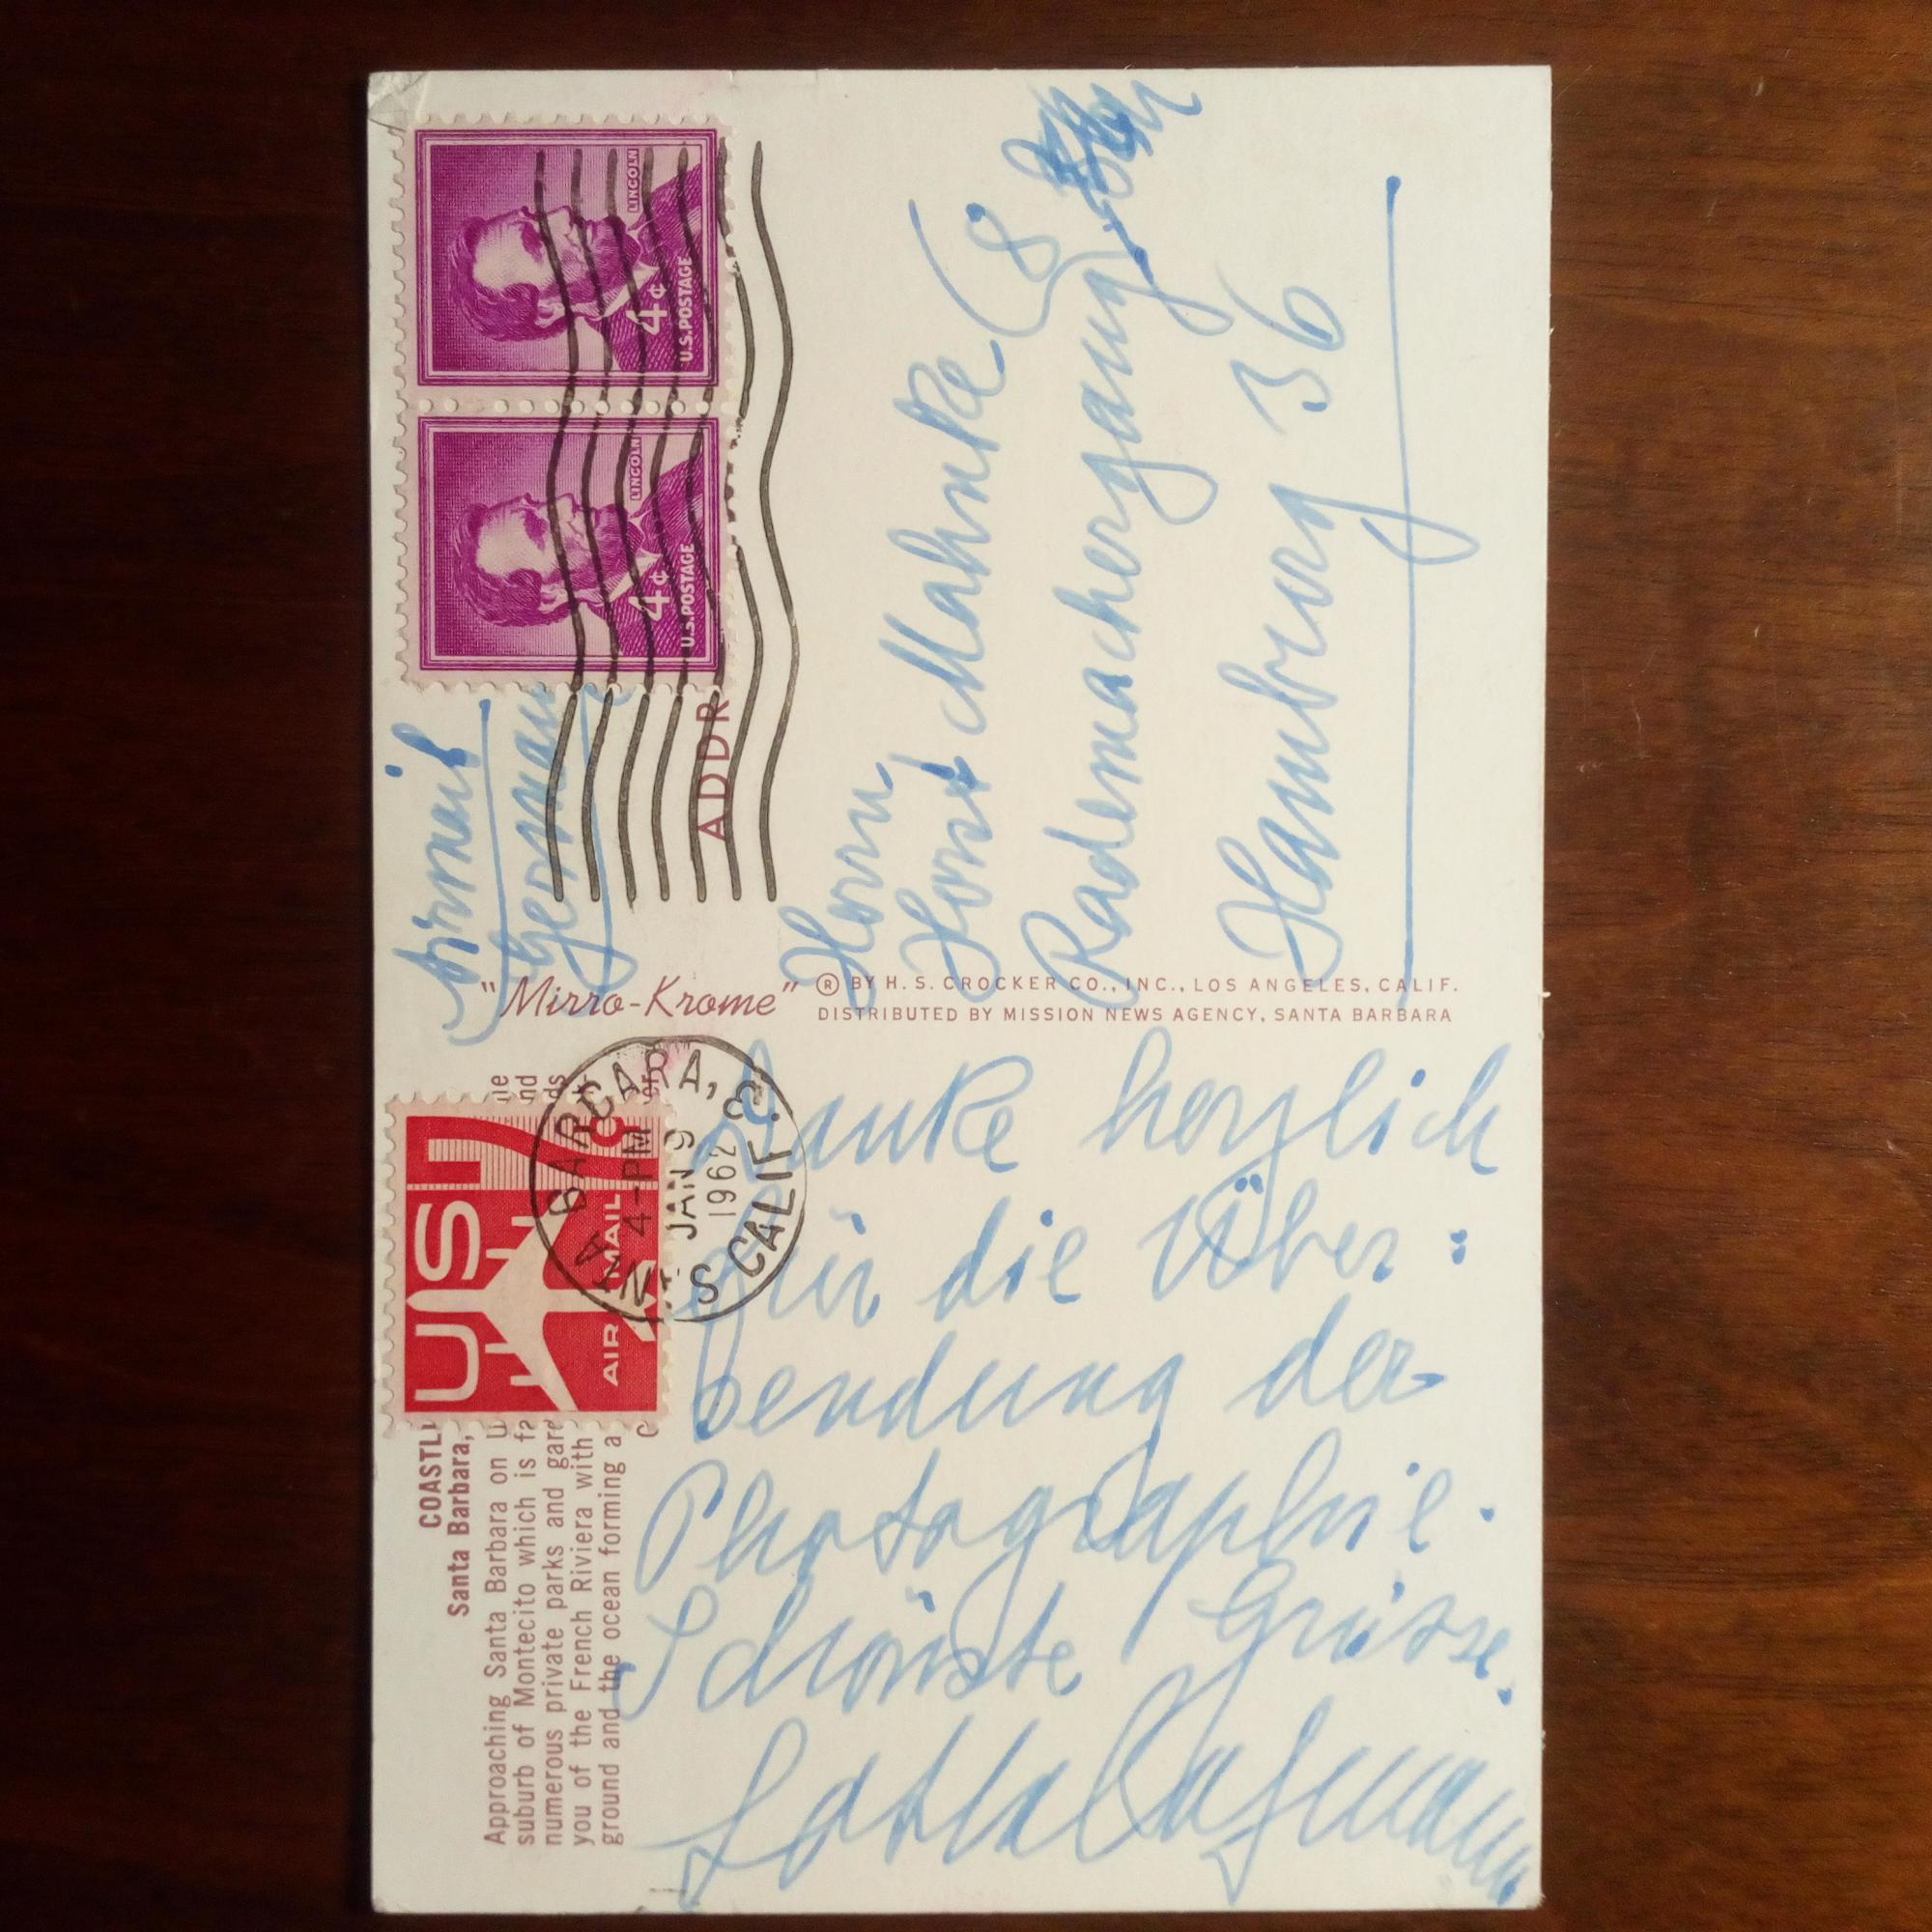 COASTLI
Santa Barbara,
Approaching Santa Barbara on U
suburb of Montecito which is fa
numerous private parks and gard
you of the French Riviera with
ground and the ocean forming a
nd
ds
US 7¢
AIR MAIL
BARBARA, CALIF.
4-PM
JAN 9
1962
Danke herzlich
für die Über:
sendung der
Photographie.
Schönste Grüsse.
Lotte Lehmann
"Mirro-Krome" ® BY H. S. CROCKER CO., INC., LOS ANGELES, CALIF.
DISTRIBUTED BY MISSION NEWS AGENCY, SANTA BARBARA
airmail
Germany
LINCOLN
4¢
U.S. POSTAGE
LINCOLN
4¢
U.S. POSTAGE
ADDR
Herrn
Horst Mahnke
Rademachergang 8
Hamburg 36